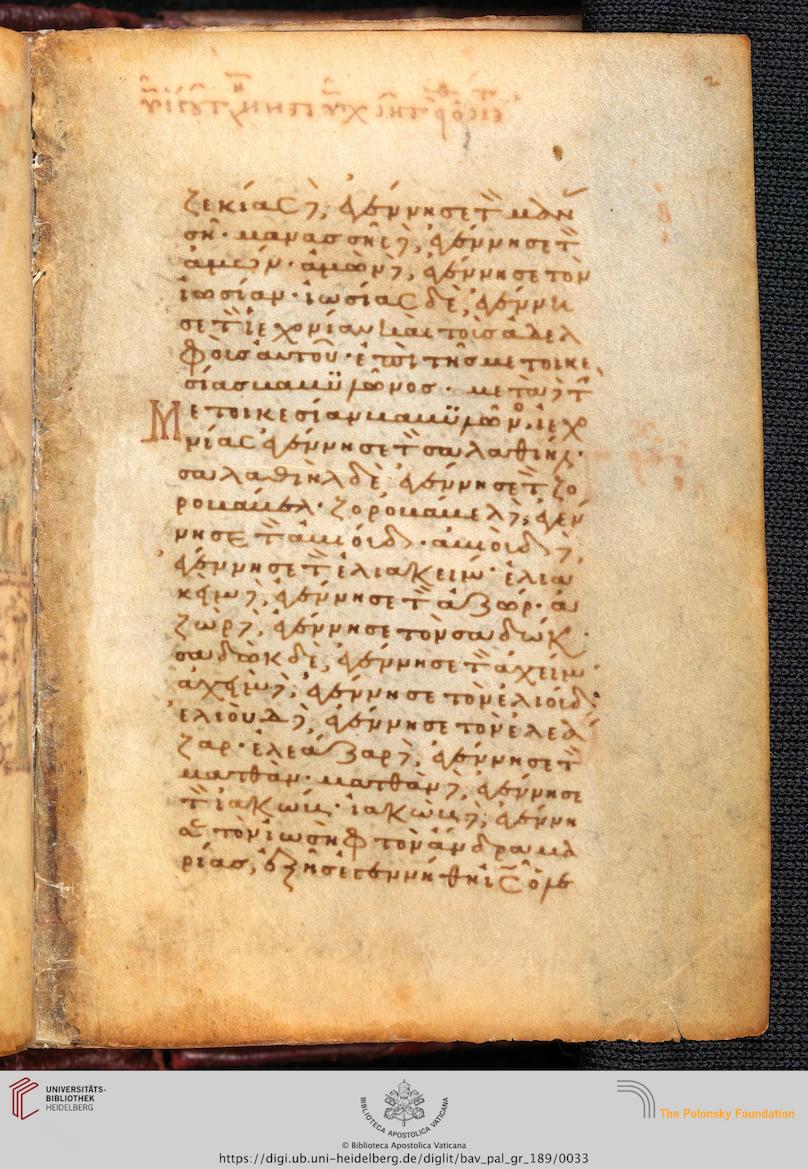 ζεκίας δὲ, ἐγέννησε τὸν μανασ
σῆ· μανασσῆς δὲ, ἐγέννησε τὸν
ἀμών· ἀμὼν δὲ, ἐγέννησε τὸν
ἰωσίαν· ἰωσίας δὲ, ἐγέννη
σε τὸν ἰεχονίαν καὶ τοὺς ἀδελ
φοὺς αὐτοῦ· ἐπὶ τῆς μετοικε
σίας βαβυλῶνος· μετὰ δὲ τὴν
Μετοικεσίαν βαβυλῶνος, ἰεχο
νίας ἐγέννησε τὸν σαλαθιήλ·
σαλαθιὴλ δὲ ἐγέννησε τὸν ζο
ροβάβελ· ζορόβαβελ δὲ, ἐγέν
νησε τὸν ἀβιούδ· ἀβιοὺδ δὲ,
ἐγέννησε τὸν ἐλιακείμ· ἐλια
κεὶμ δὲ, ἐγέννησε τὸν ἀζώρ· ἀ
ζὼρ δὲ, ἐγέννησε τὸν σαδώκ·
σαδὼκ δὲ, ἐγέννησε τὸν ἀχείμ·
ἀχεὶμ δὲ, ἐγέννησε τὸν ἐλιούδ·
ἐλιοὺδ δὲ, ἐγέννησε τὸν ἐλεά
ζαρ· ἐλεάζαρ δὲ, ἐγέννησε τὸν
ματθάν· ματθὰν δὲ, ἐγέννησε
τὸν ἰακώβ· ἰακὼβ δὲ, ἐγέννη
σε τὸν ἰωσὴφ τὸν ἄνδρα μα
ρίας, ἐξ ἧς ἐγεννήθη ἰς ὁ λε
UNIVERSITÄTS-
BIBLIOTHEK
HEIDELBERG
BIBLIOTECA APOSTOLICA VATICANA
The Polonsky Foundation
© Biblioteca Apostolica Vaticana
https://digi.ub.uni-heidelberg.de/diglit/bav_pal_gr_189/0033